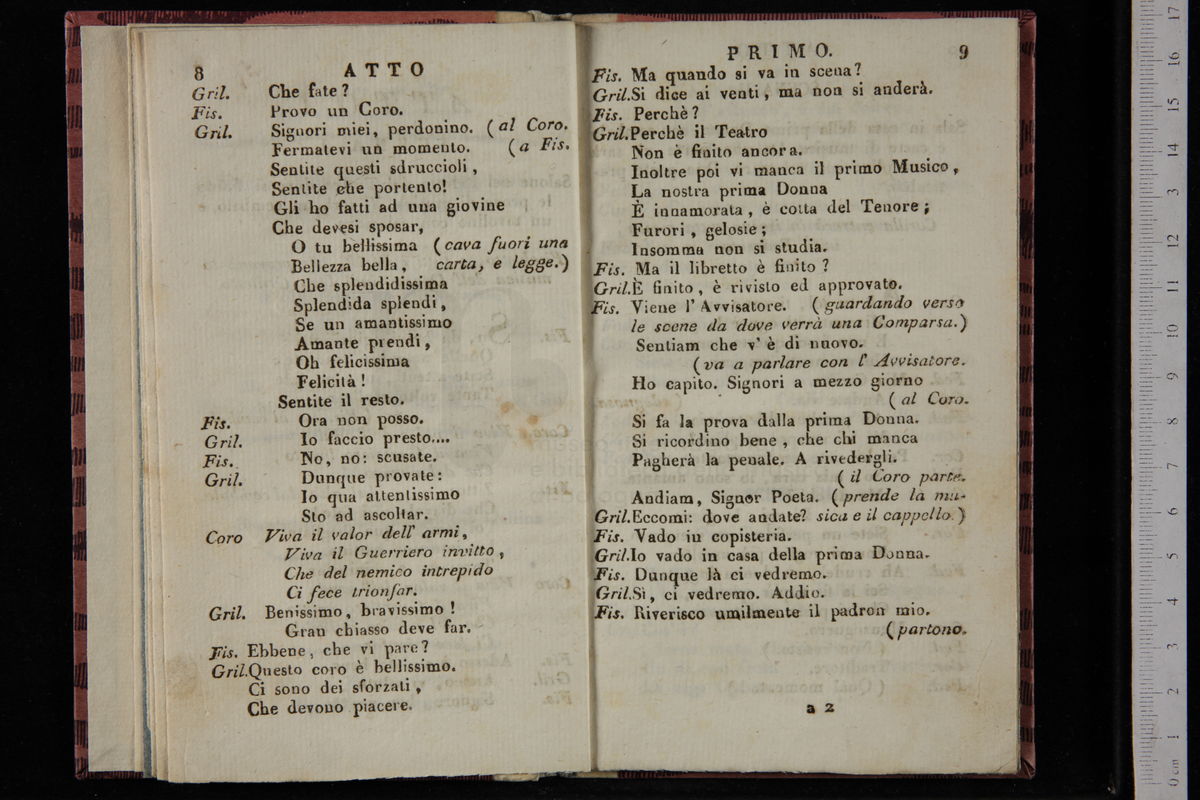 8 ATTO
Gril. Che fate?
Fis. Provo un Coro.
Gril. Signori miei, perdonino. (al Coro.
Fermatevi un momento. (a Fis.
Sentite questi sdruccioli,
Sentite che portento!
Gli ho fatti ad una giovine
Che devesi sposar,
O tu bellissima (cava fuori una
Bellezza bella, carta, e legge.)
Che splendidissima
Splendida splendi,
Se un amantissimo
Amante prendi,
Oh felicissima
Felicità!
Sentite il resto.
Fis. Ora non posso.
Gril. Io faccio presto....
Fis. No, no: scusate.
Gril. Dunque provate:
Io qua attentissimo
Sto ad ascoltar.
Coro Viva il valor dell' armi,
Viva il Guerriero invitto,
Che del nemico intrepido
Ci fece trionfar.
Gril. Benissimo, bravissimo!
Gran chiasso deve far.
Fis. Ebbene, che vi pare?
Gril. Questo coro è bellissimo.
Ci sono dei sforzati,
Che devono piacere.
PRIMO. 9
Fis. Ma quando si va in scena?
Gril. Si dice ai venti, ma non si anderà.
Fis. Perchè?
Gril. Perchè il Teatro
Non è finito ancora.
Inoltre poi vi manca il primo Musico,
La nostra prima Donna
È innamorata, è cotta del Tenore;
Furori, gelosie;
Insomma non si studia.
Fis. Ma il libretto è finito?
Gril. È finito, è rivisto ed approvato.
Fis. Viene l' Avvisatore. (guardando verso
le scene da dove verrà una Comparsa.)
Sentiam che v' è di nuovo.
(va a parlare con l' Avvisatore.
Ho capito. Signori a mezzo giorno
(al Coro.
Si fa la prova dalla prima Donna.
Si ricordino bene, che chi manca
Pagherà la penale. A rivedergli.
(il Coro parte.
Andiam, Signor Poeta. (prende la mu-
Gril. Eccomi: dove andate? sica e il cappello.)
Fis. Vado in copisteria.
Gril. Io vado in casa della prima Donna.
Fis. Dunque là ci vedremo.
Gril. Sì, ci vedremo. Addio.
Fis. Riverisco umilmente il padron mio.
(partono.
a 2
0 cm 1 2 3 4 5 6 7 8 9 10 11 12 13 14 15 16 17